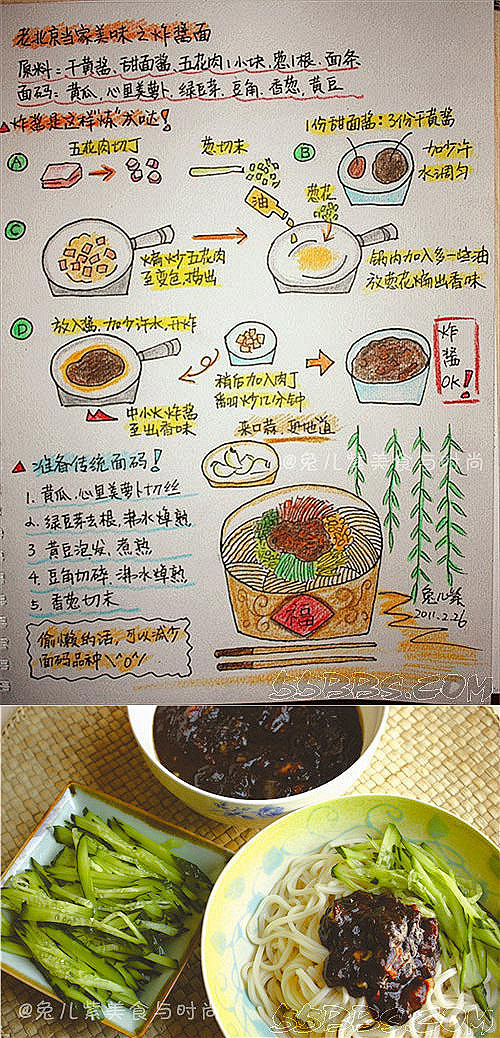 老北京当家美味之炸酱面
原料:干黄酱、甜面酱、五花肉1小块、葱1根、面条
面码:黄瓜、心里美萝卜、绿豆芽、豆角、香葱、黄豆
炸酱是这样"炼"成哒!
A
五花肉切丁
葱切末
B
1份甜面酱:3份干黄酱
加少许
水调匀
C
煸炒五花肉
至变色,捞出
油
葱花
锅内加入多一些油
放葱花煸出香味
D
放入酱,加少许水,开炸
中小火炸酱
至出香味
稍后加入肉丁
翻炒几分钟
炸
酱
OK!
来口蒜,更地道
准备传统面码!
1. 黄瓜、心里美萝卜切丝
2. 绿豆芽去根,沸水焯熟
3. 黄豆泡发、煮熟
4. 豆角切碎、沸水焯熟
5. 香葱切末
偷懒的话,可以减少
面码品种 \^o^/
@兔儿紫美食与时尚
福
兔儿紫
2011.2.26
55BBS.COM
@兔儿紫美食与时尚
55BBS.COM